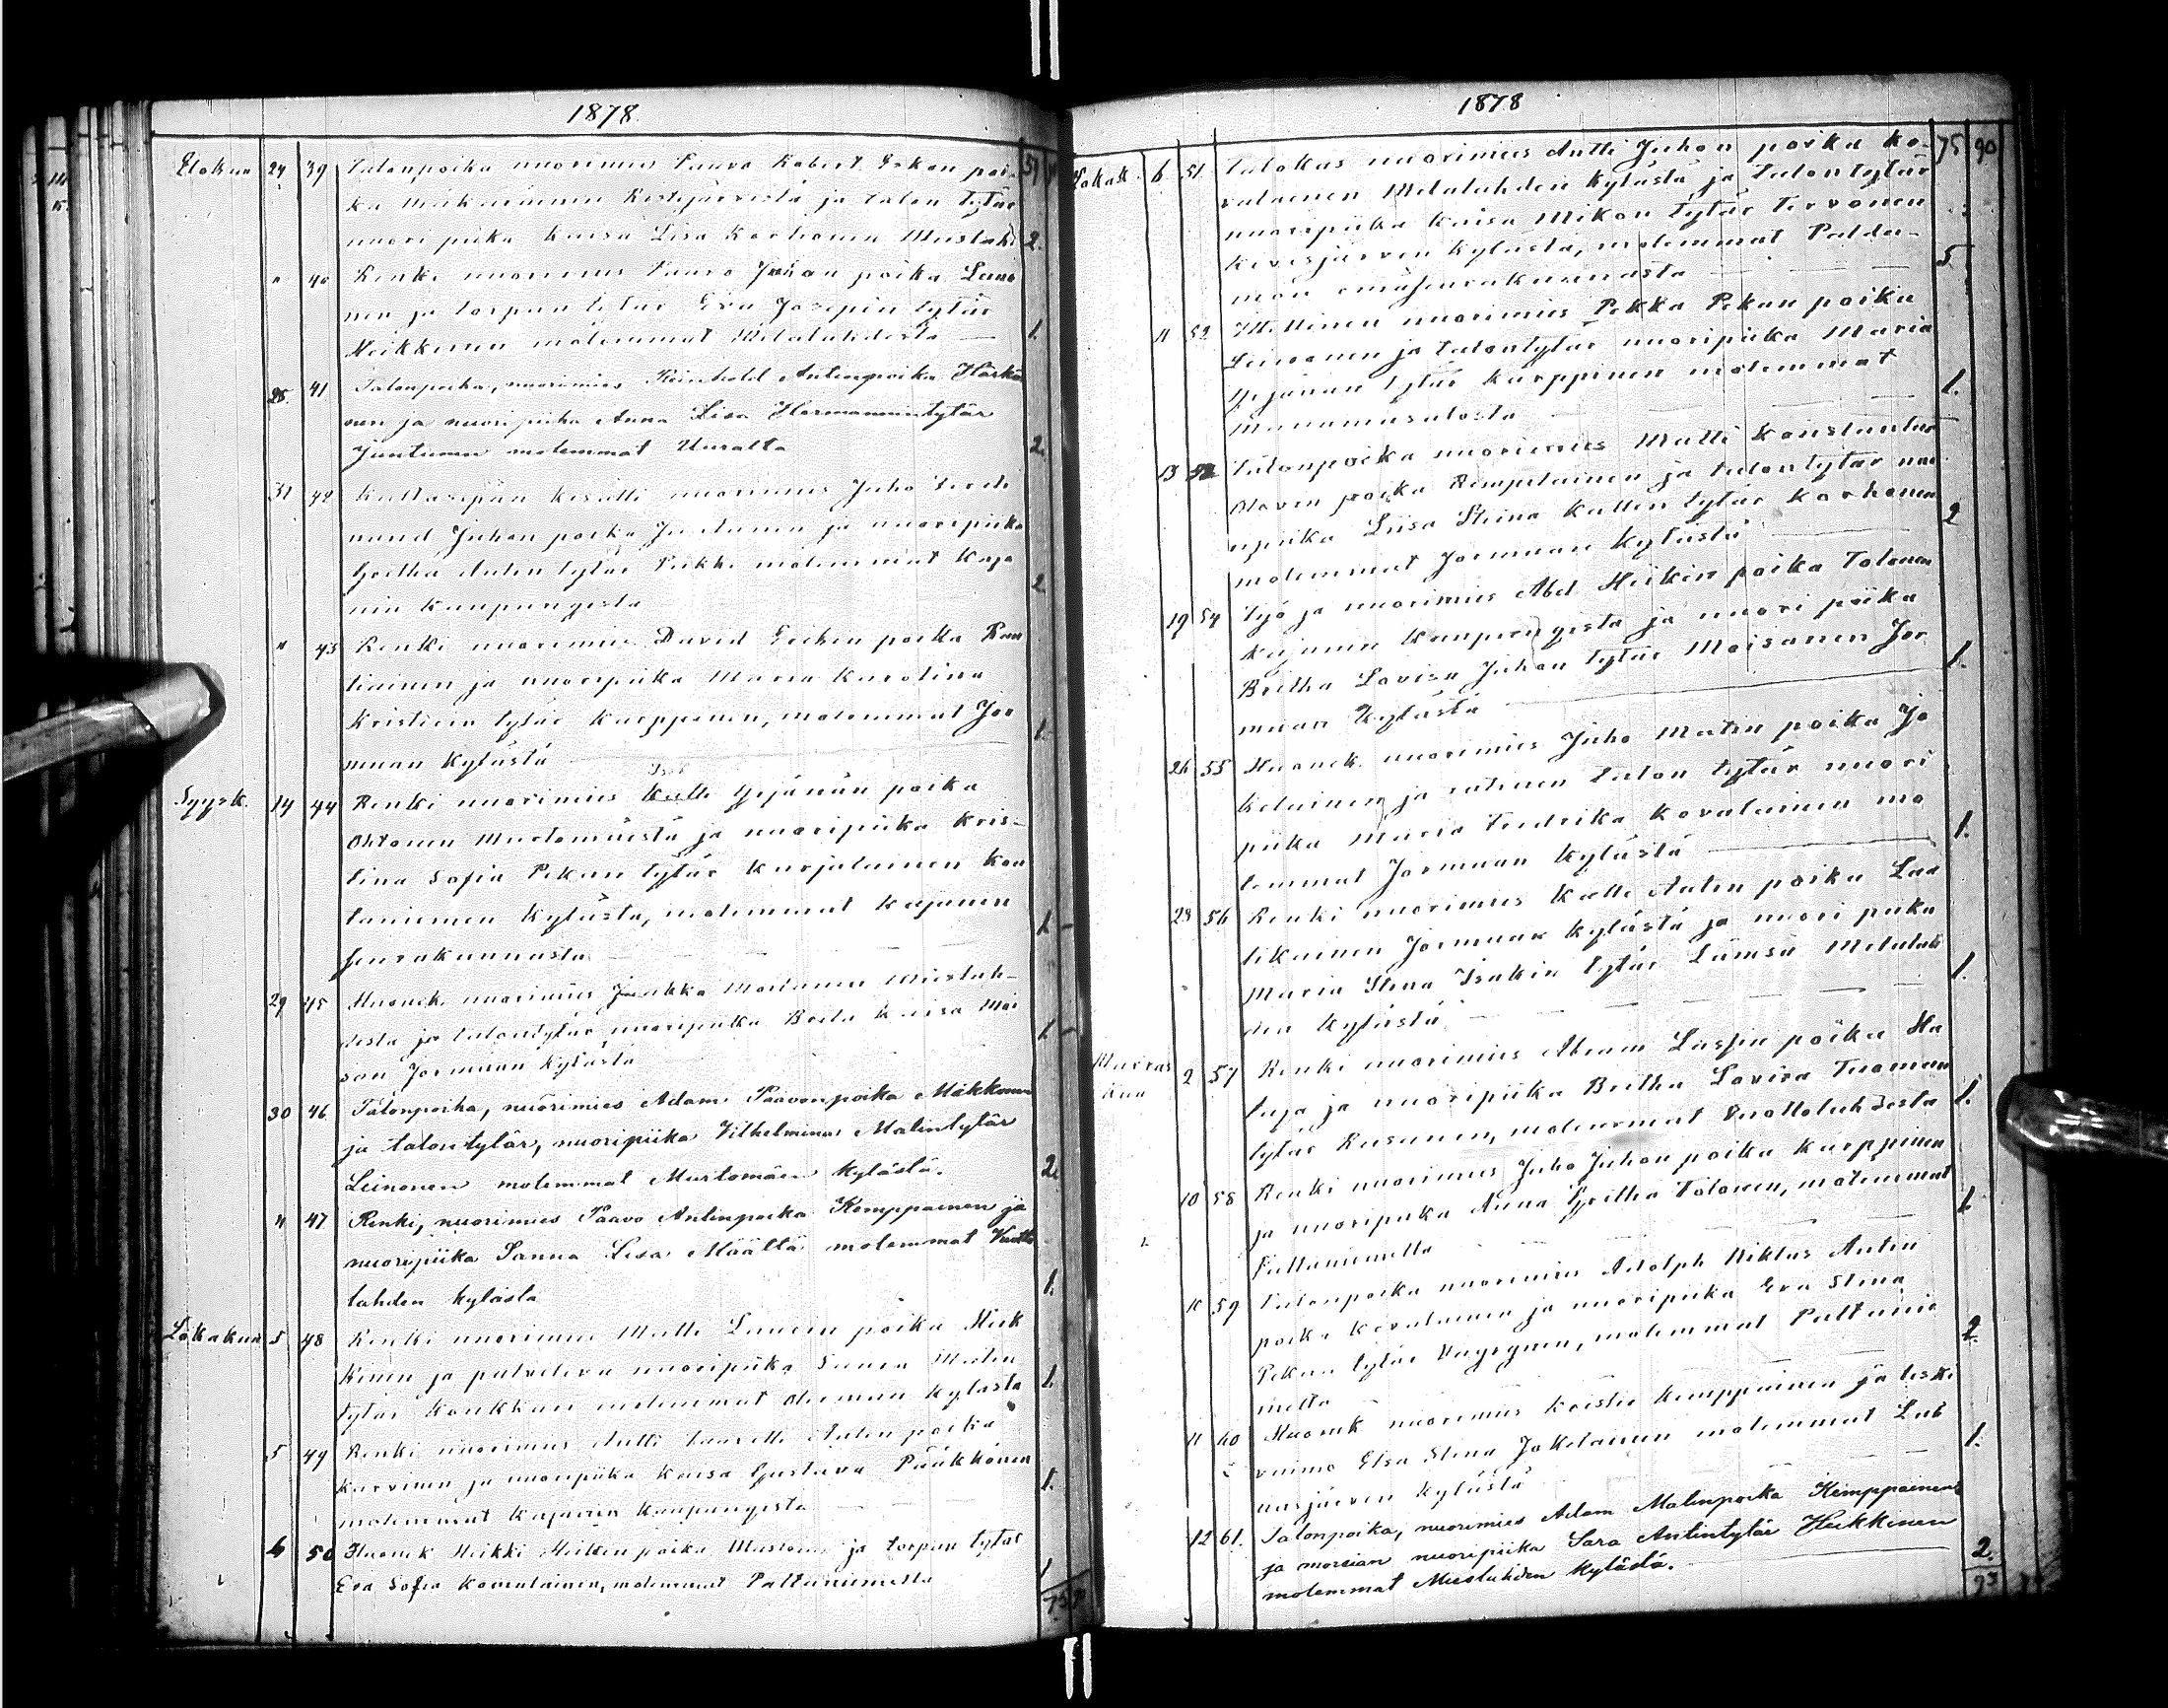 1878.
Elokuu 24 39 Talonpoika nuorimies Paavo Robert Eskon poi- 51
ka Ristijärvestä ja talon tytär
nuori piika Kaisa Lisa Korhonen Mieslahd 2.
" 40 Renki nuorimies Paavo Juhan poika Leino
nen ja torpan tytär Eva Josepin tytär
Heikkinen molemmat Melalahdesta — 1.
25. 41 Talonpoika, nuorimies Reinhold Antinpoika Härkö
nen ja nuori piika Anna Lisa Hermannintytär
Juntunen molemmat Uuralta 2.
31 42 Kultasepän kisälli nuorimies Juho Ferdi
nand Juhan poika Juntunen ja nuoripiika
Gretha Antin tytär Pikki molemmat Kaja
nin kaupungista 2.
" 43 Renki nuorimies David Erikin poika Ran
tiainen ja nuoripiika Maria Karolina
Kristerin tytär Karppinen, molemmat Jor
muan kylästä 1.
Syysk. 14 44 Renki nuorimies Kalle Yrjänän poika
Ohtonen Murtomäistä ja nuoripiika Kris-
tina Sofia Pekan tytär Karjalainen Kou
taniemen kylästä, molemmat Kajanin
seurakunnasta 1 -
29 45 Huonek. nuorimies Jaakko Mustonen Mieslah-
desta ja talontytär nuoripiika Brita Kaisa Moi
san Jormuan kylästä 1 -
30 46 Talonpoika, nuorimies Adam Paavonpoika Mikkonen
ja talontytär, nuoripiika Vilhelmina Matintytär
Leinonen molemmat Murtomäen kylästä. 2.
" 47 Renki, nuorimies Paavo Antinpoika Kemppainen ja
nuoripiika Sanna Lisa Määttä molemmat Vuotto
lahden kylästä 1.
Lokakuu 5 48 Renki nuorimies Matti Laurin poika Heik
kinen ja palveleva nuoripiika Sanna Matin
tytär Konkkari molemmat kylästä 1.
5 49 Renki nuorimies Antti Lauretti Antin poika
Karvinen ja nuoripiika Kaisa Gustava Pääkkönen
molemmat Kajanin kaupungista 1.
6 50 Huonek Heikki Heikin poika Mustonen ja torpan tytär
Eva Sofia Kovalainen, molemmat Paltaniemeltä 1
75
1878
Lokak. 6 51 Talokas nuorimies Antti Juhon poika Ko- 75 90
valainen Melalahden kylästä ja talontytär
nuoripiika Kaisa Mikon tytär Tervonen
Kivesjärven kylästä, molemmat Palda-
mon emäseurakunnasta 5
" 52 Itsellinen nuorimies Pekka Pekan poika
Leinonen ja talontytär nuoripiika Maria
Yrjänän tytär Karppinen molemmat
Manamansalosta 1.
13 53 Talonpoika nuorimies Matti Konstantin
Olavin poika Rimpilainen ja talontytär nuo
ripiika Liisa Stina Kallen tytär Korhonen
molemmat Jormuan kylästä 2
19 54 Työ ja nuorimies Abel Heikin poika Tolonen
Kajanin kaupungista ja nuori piika
Britha Lovisa Juhan tytär Moisanen Jor
muan kylästä 1.
26 55 Huonek. nuorimies Juho Matin poika Jo
kelainen ja entinen talon tytär nuori
piika Maria Fredrika Kovalainen mo
lemmat Jormuan kylästä 1.
28 56 Renki nuorimies Kalle Antin poika Laa
tikainen Jormuan kylästä ja nuori piika
Maria Stina Isakin tytär Lämsä Melalah
den kylästä 1.
Marras
kuu 2 57 Renki nuorimies Abram Lassin poika Ha
taja ja nuoripiika Britha Lovisa Tuoman
tytär Rusanen, molemmat Vuottolahdesta 1.
10 58 Renki nuorimies Juho Juhon poika Karppinen
ja nuoripiika Anna Gretha Tolonen, molemmat
Paltaniemeltä 1.
10 59 Talonpoika nuorimies Adolph Niklas Antin
poika Kovalainen ja nuoripiika Eva Stina
Pekan tytär Väyrynen, molemmat Paltanie
meltä 2.
11 60 Huonek nuorimies Krister Kemppainen ja leski
vaimo Elsa Stina Jokelainen molemmat Lah
nasjärven kylästä 1.
12 61. Talonpoika, nuorimies Adam Matinpoika Kemppainen
ja morsian nuoripiika Sara Antintytär Heikkinen
molemmat Mieslahden kylästä. 2.
93